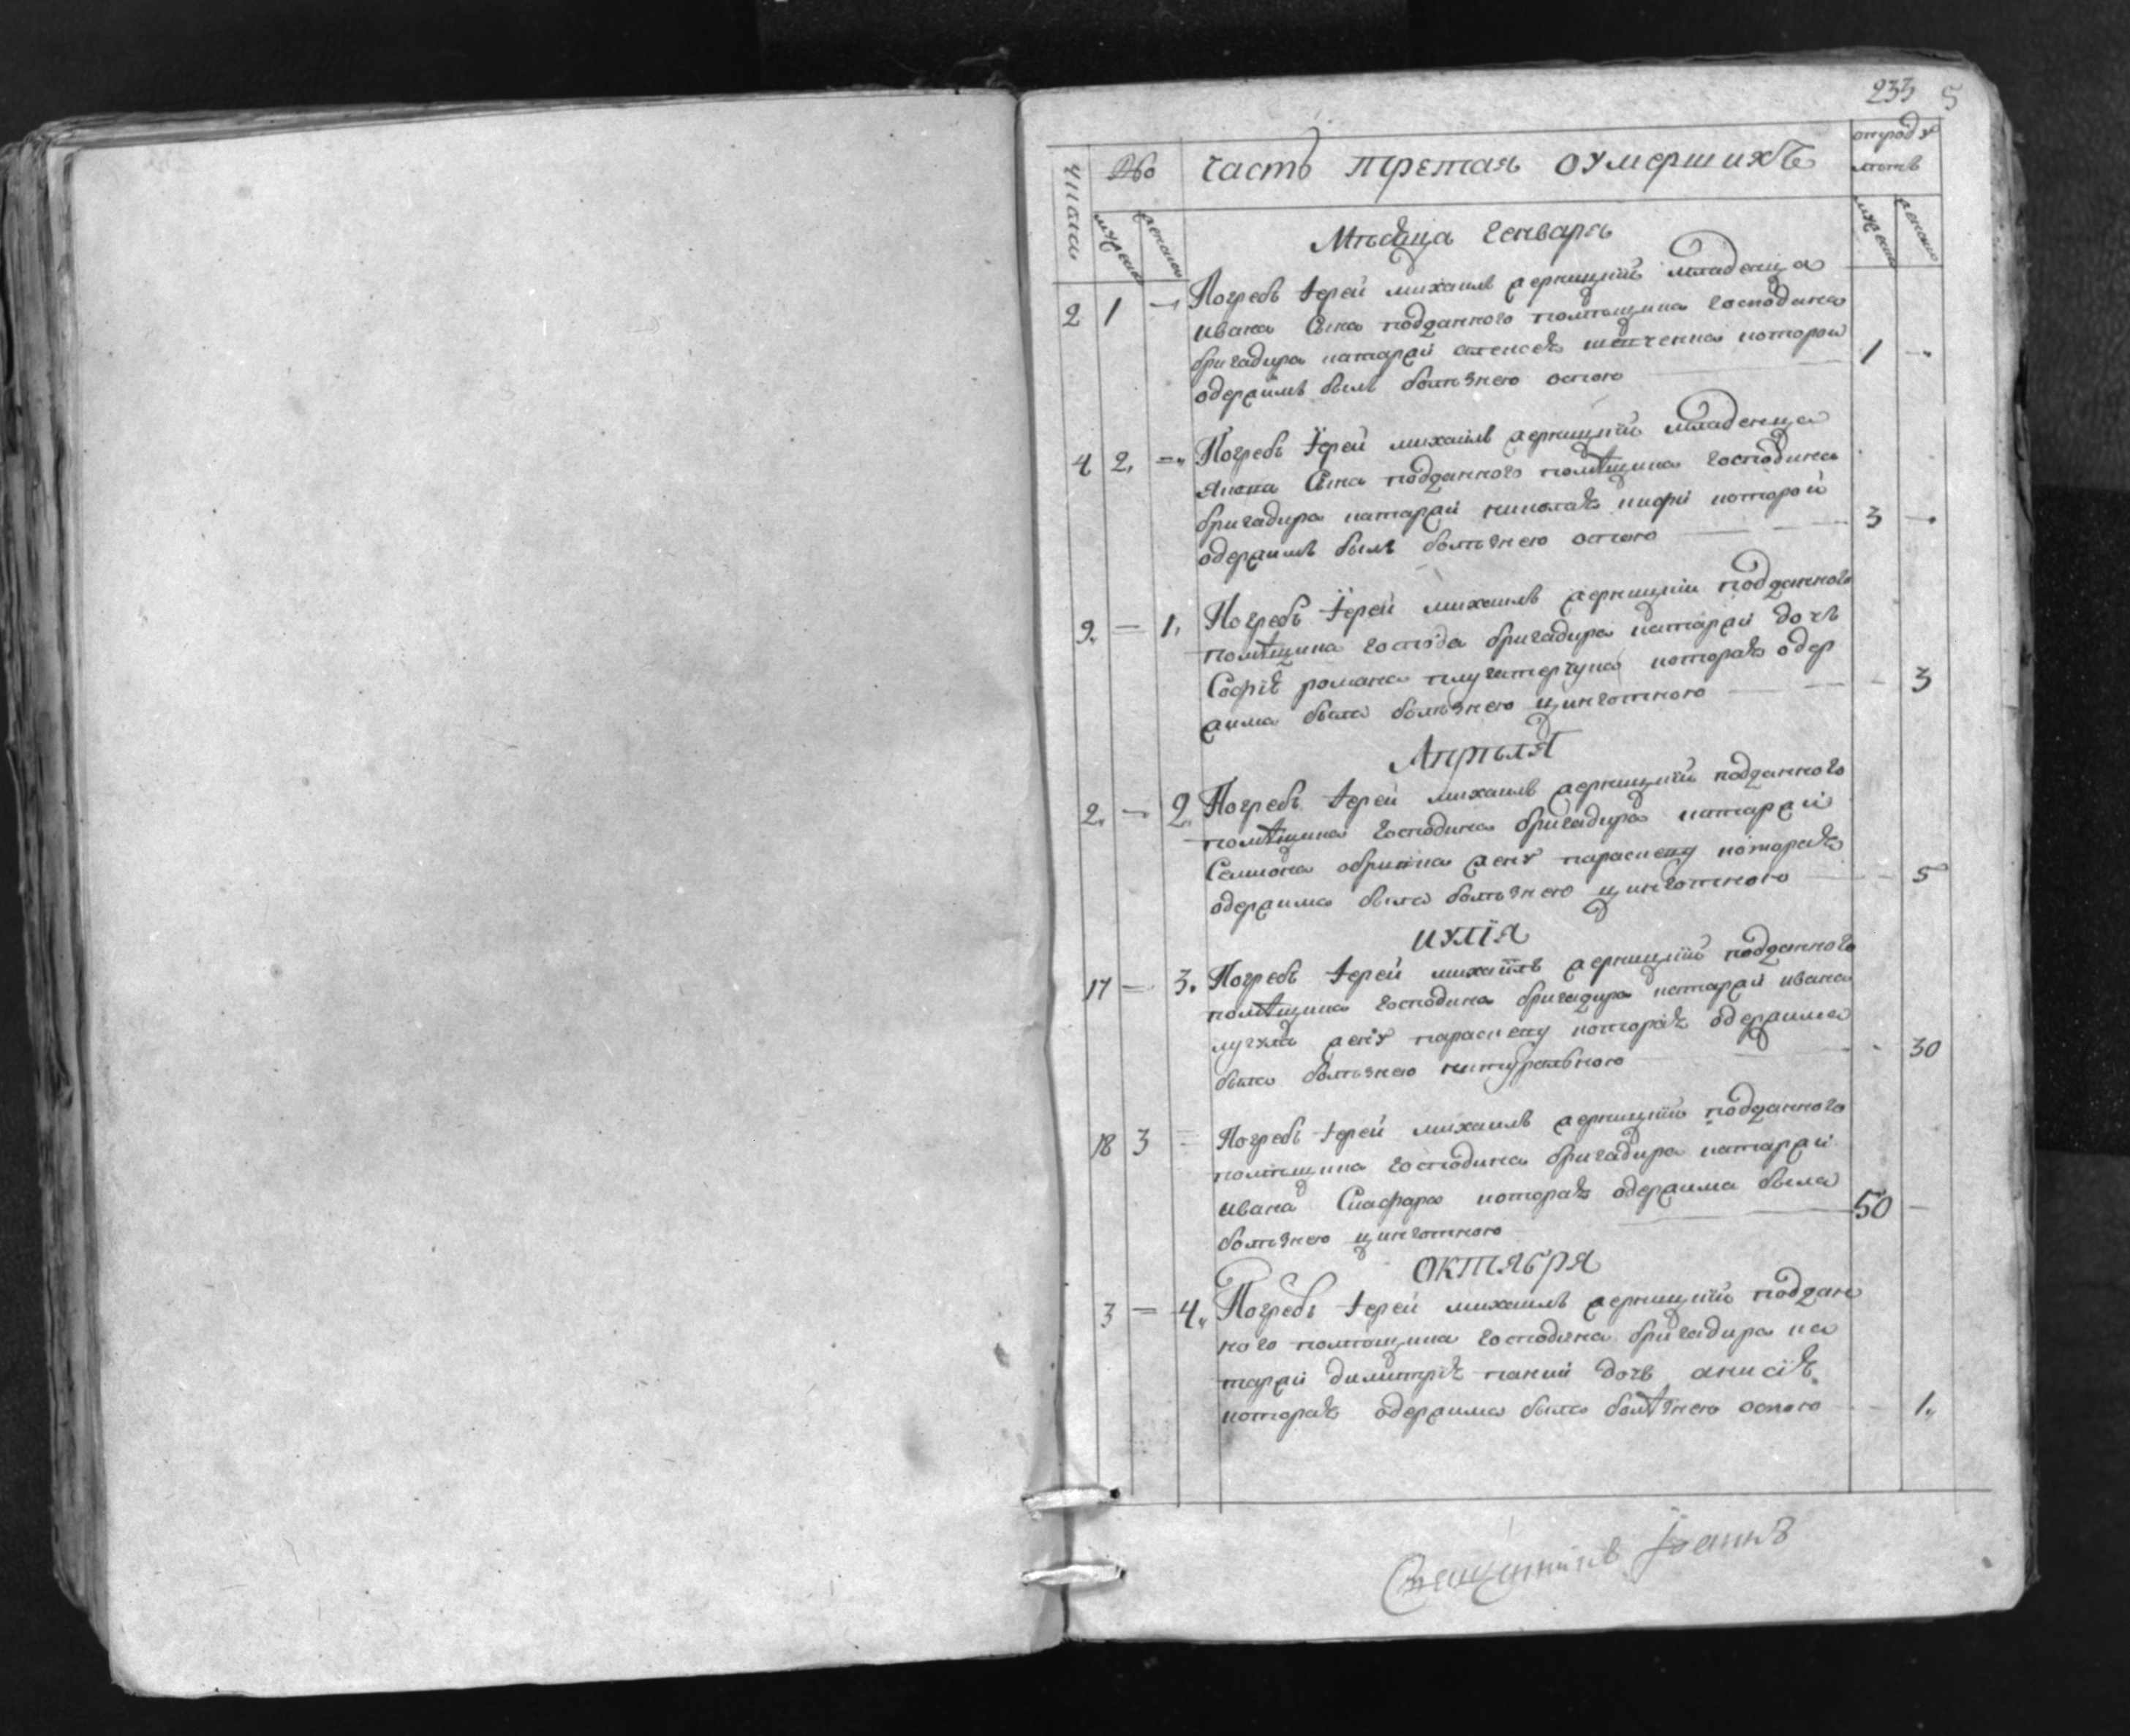 233 5
числа Часть третая оумершихъ
мужеска женска мужеска женска
Мѣсяца Генваря
2 1 — Погребъ Іерей михаилъ жерницкій младенца
ивана Сына подданного помѣщика господина
бригадира катаржи алексѣя шевченка которой
одержимъ былъ болѣзнею оспою 1 —
4 2. — Погребъ Іерей михаилъ жерницкій младенца
Сына подданного помѣщика господина
бригадира катаржи николая которой
одержимъ былъ болѣзнею оспою 3 —
9. — 1. Погребъ Іерей михаилъ жерницкій подданного
помѣщика господа бригадира катаржи дочь
Софія романа которая одер
жима была болѣзнею цинготною — 3
Апрѣля
2. — 2. Погребъ Іерей михаилъ жерницкій подданного
помѣщика господина бригадира катаржи
Семиона жену параскеву которая
одержима была болѣзнею цинготною — 5
иулія
17 — 3. Погребъ Іерей михаилъ жерницкій подданного
помѣщика господина бригадира катаржи ивана
жену параскеву которая одержима
была болѣзнею натуральною — 30
18 3 — Погребъ Іерей михаилъ жерницкій подданного
помѣщика господина бригадира катаржи
ивана которая одержима была
болѣзнею цинготною 50 —
октября
3 — 4. Погребъ Іерей михаилъ жерницкій поддан
ного помѣщика господина бригадира ка
таржи димитрія дочь анисія
которая одержима была болѣзнею оспою — 1.
Священникъ Іоаннъ